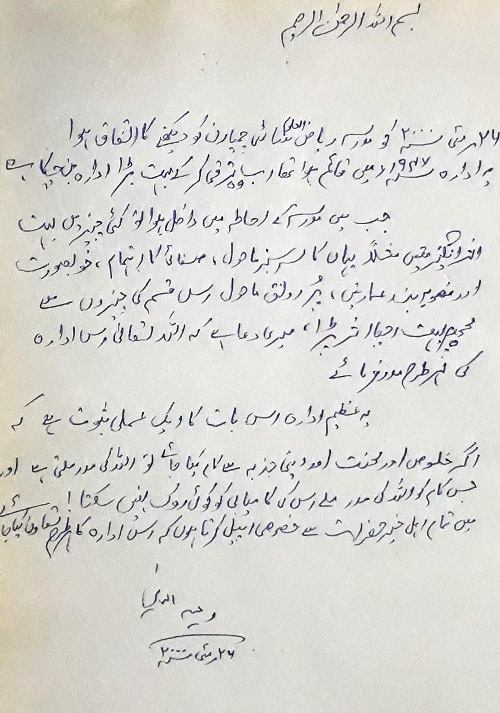 بسم اللہ الرحمٰن الرحیم
۲۶ مئی ۲۰۰۰ء کو مدرسہ ریاض العلوم ساٹھی چمپارن کو دیکھنے کا اتفاق ہوا
یہ ادارہ ۱۹۲۷ء میں قائم ہوا تھا اب وہ ترقی کر کے بہت بڑا ادارہ بن چکا ہے
جب میں مدرسہ کے احاطہ میں داخل ہوا تو کئی چیزیں بہت
اثر انگیز تھیں مثلاً یہاں کا سرسبز ماحول، صفائی کا اہتمام، خوبصورت
اور منصوبہ بند عمارتیں، پُر رونق ماحول اس قسم کی چیزوں سے
مجھ پر بہت اچھا اثر پڑا، میری دعا ہے کہ اللہ تعالیٰ اس ادارہ
کی ہر طرح مدد فرمائے
یہ عظیم ادارہ اس بات کا ایک عملی ثبوت ہے کہ
اگر خلوص اور محنت اور دینی جذبہ سے کام کیا جائے تو اللہ کی مدد ملتی ہے اور
جس کام کو اللہ کی مدد ملے اس کی کامیابی کو کوئی روک نہیں سکتا!
میں تمام اہل خیر حضرات سے خصوصی اپیل کرتا ہوں کہ اس ادارہ کا ہر طرح تعاون کیا جائے
وحید الدین
۲۶ مئی ۲۰۰۰ء